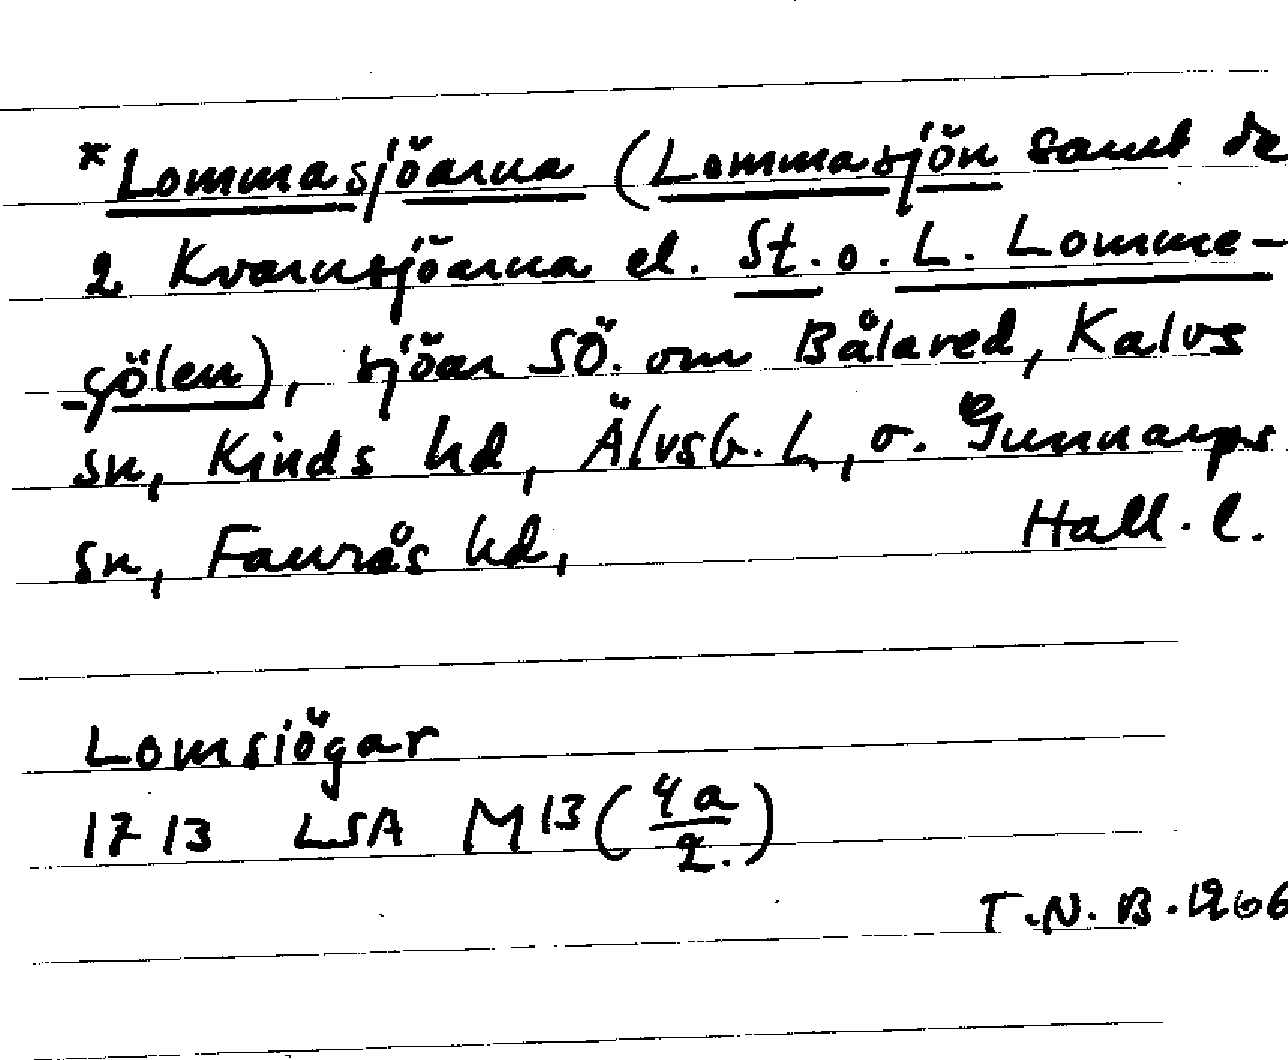 *Lommasjöarna (Lommasjön samt de
2 Kvarnsjöarna el. St. o. L. Lomme-
gölen), sjöar SÖ. om Bålared, Kalvs
sn, Kinds hd, Älvsb. L, o. Gunnarps
sn, Faurås hd, Hall. l.
Lomsiögar
1713 LSA M13(4a/2.)
T.N.B. 1966